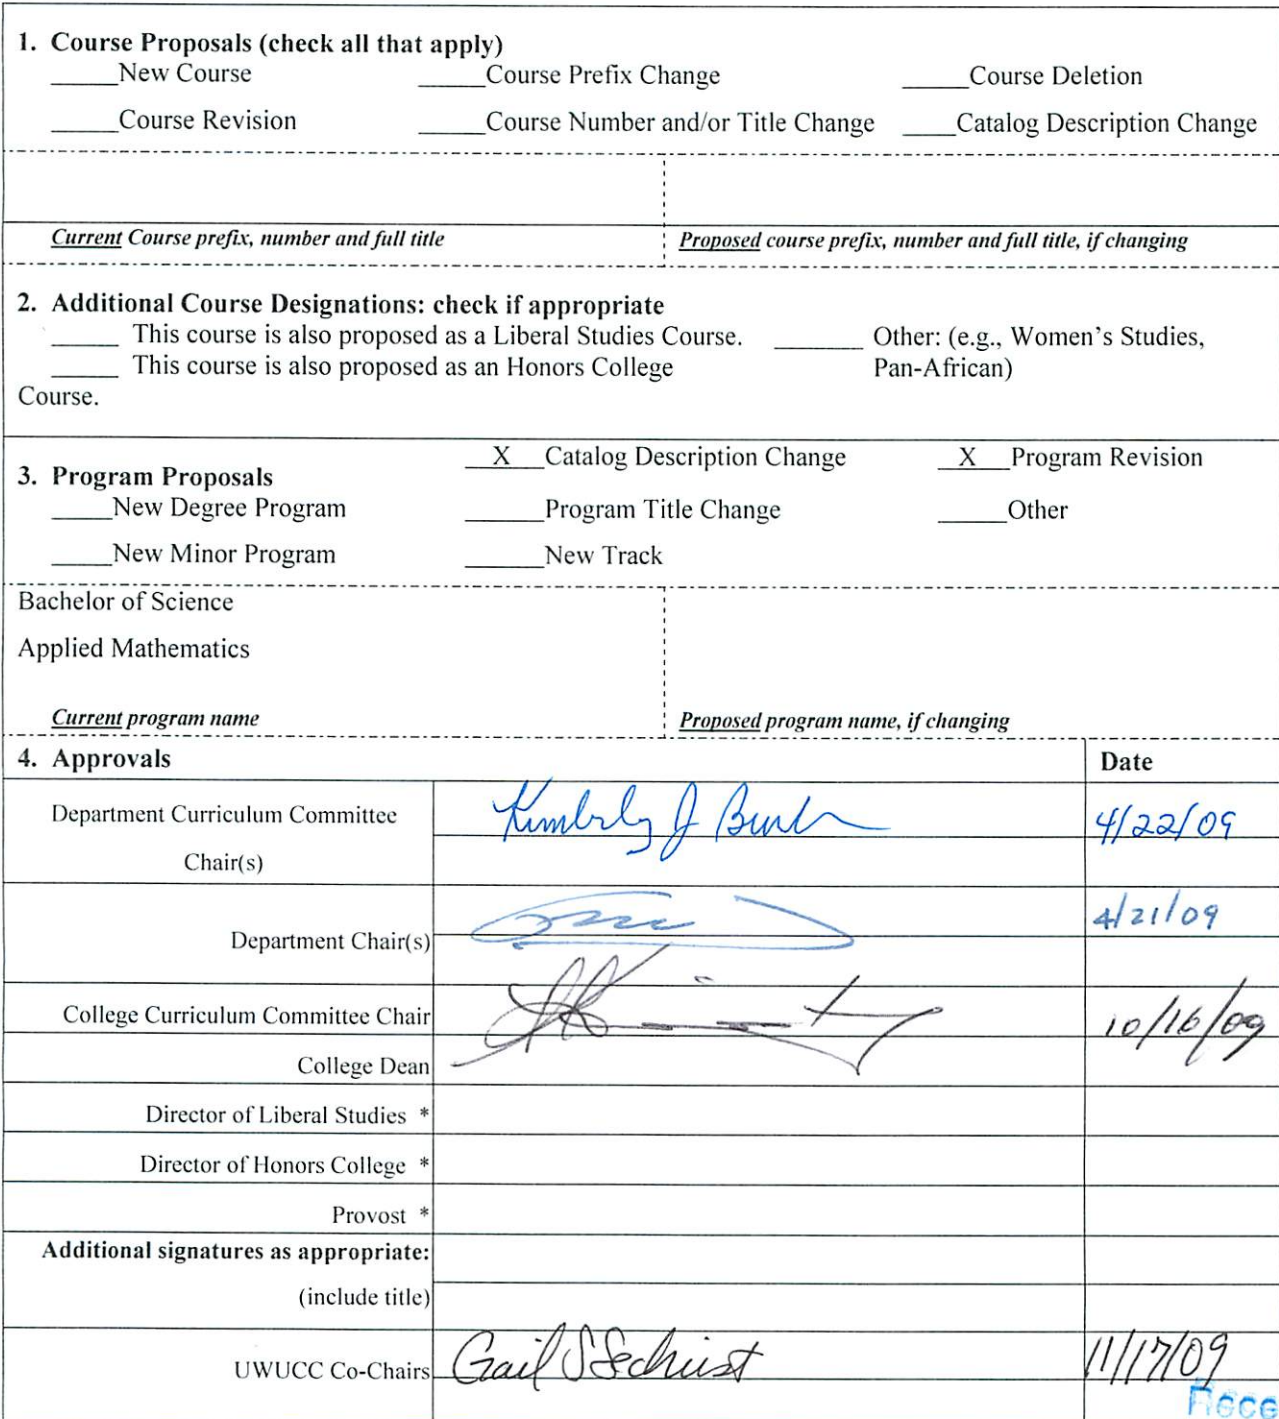 1. Course Proposals (check all that apply)
_____New Course _____Course Prefix Change _____Course Deletion
_____Course Revision _____Course Number and/or Title Change ____Catalog Description Change
Current Course prefix, number and full title Proposed course prefix, number and full title, if changing
2. Additional Course Designations: check if appropriate
_____ This course is also proposed as a Liberal Studies Course. ______ Other: (e.g., Women's Studies,
_____ This course is also proposed as an Honors College Pan-African)
Course.
__X__Catalog Description Change __X__Program Revision
3. Program Proposals
_____New Degree Program ______Program Title Change _____Other
_____New Minor Program ______New Track
Bachelor of Science
Applied Mathematics
Current program name Proposed program name, if changing
4. Approvals Date
Department Curriculum Committee Kimberly J 4/22/09
Chair(s)
4/21/09
Department Chair(s)
College Curriculum Committee Chair 10/16/09
College Dean
Director of Liberal Studies *
Director of Honors College *
Provost *
Additional signatures as appropriate:
(include title)
UWUCC Co-Chairs Gail S Sechrist 11/17/09
Rece